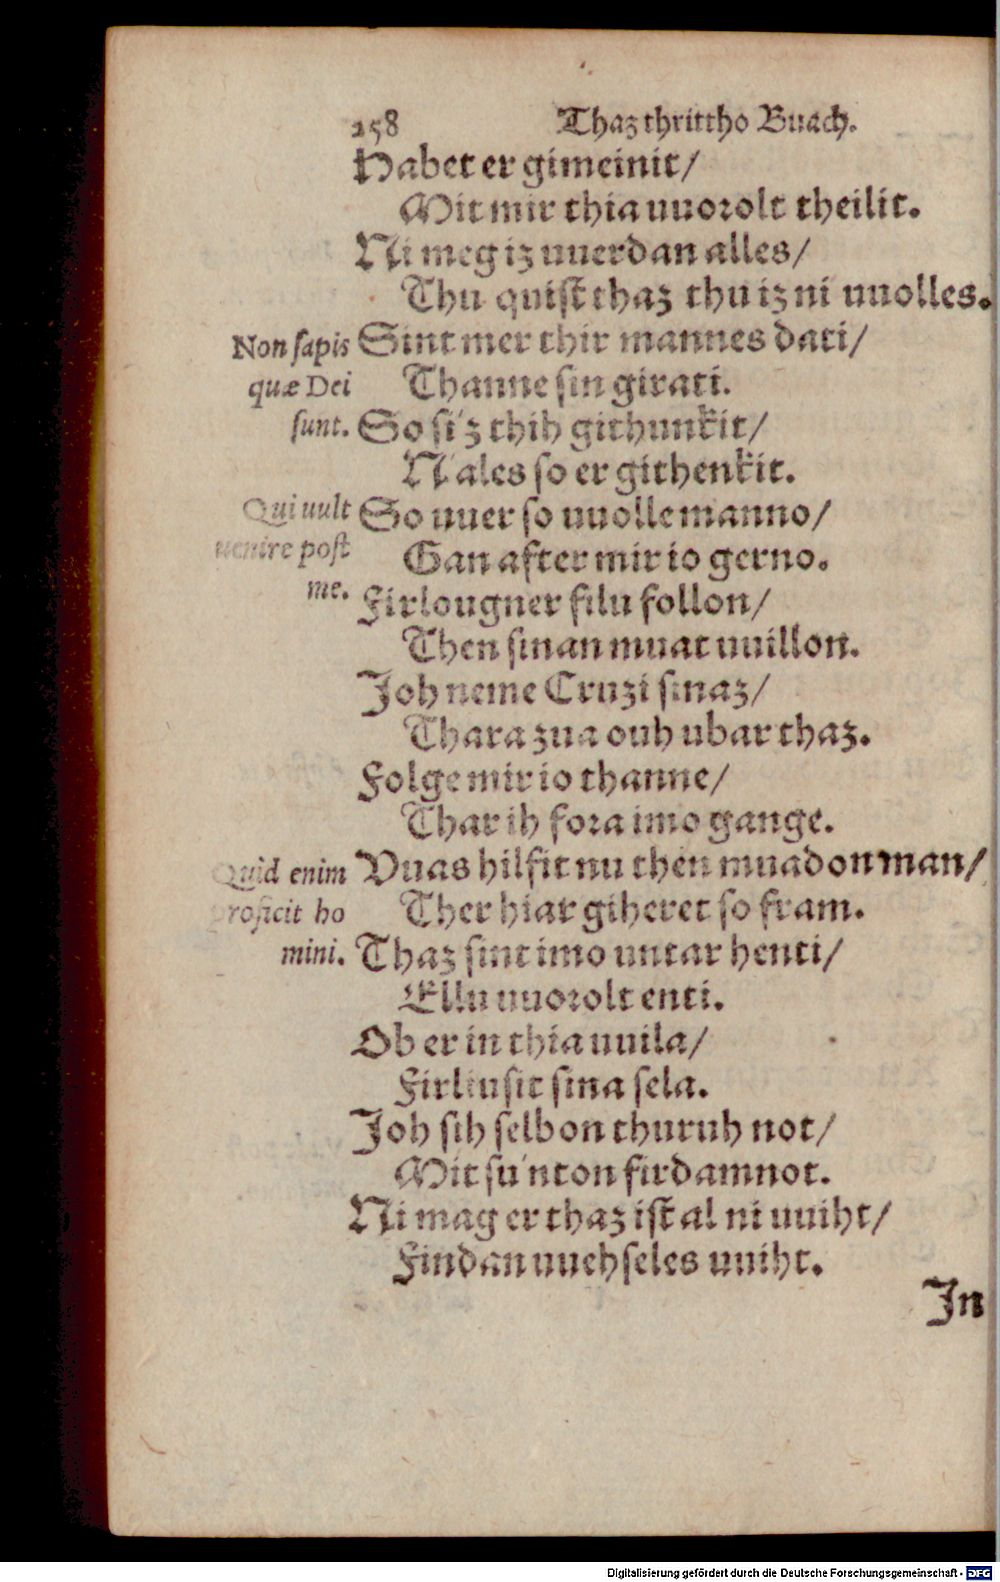 258 Thaz thrittho Buach.
Habet er gimeinit/
Mit mir thia uuorolt theilit.
Ni meg iz uuerdan alles/
Thu quist thaz thu iz ni uuolles.
Non sapis
quæ Dei
sunt.
Sint mer thir mannes dati/
Thanne sin girati.
So si'z thih githunkit/
N'ales so er githenkit.
Qui uult
uenire post
me.
So uuer so uuolle manno/
Gan after mir io gerno.
Firlougner filu follon/
Then sinan muat uuillon.
Joh neme Cruzi sinaz/
Thara zua ouh ubar thaz.
Folge mir io thanne/
Thar ih fora imo gange.
Quid enim
proficit ho
mini.
Vuas hilfit nu then muadon man/
Ther hiar giheret so fram.
Thaz sint imo untar henti/
Ellu uuorolt enti.
Ob er in thia uuila/
Firliusit sina sela.
Joh sih selbon thuruh not/
Mit su'nton firdamnot.
Ni mag er thaz ist al ni uuiht/
Findan uuehseles uuiht.
Jn
Digitalisierung gefördert durch die Deutsche Forschungsgemeinschaft - DFG